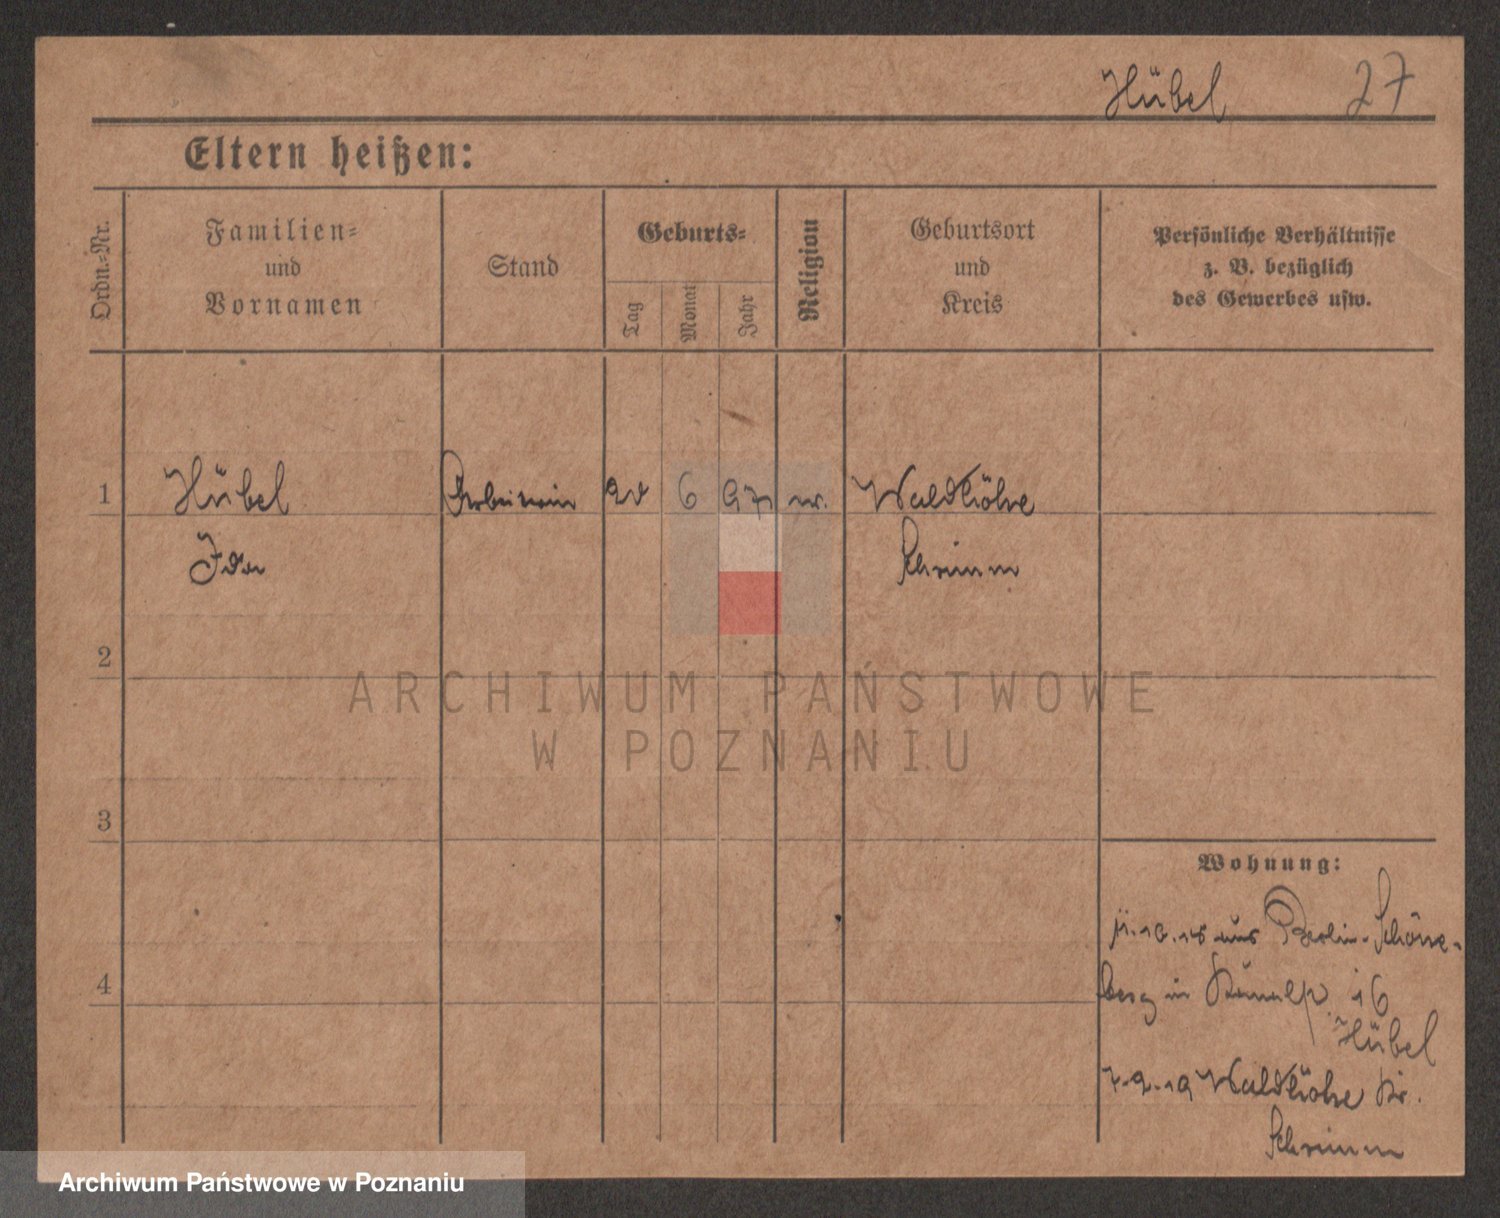 Hübel 27
Eltern heißen:
Ordn.-Nr.
Familien-
und
Vornamen
Stand
Geburts-
Tag
Monat
Jahr
Religion
Geburtsort
und
Kreis
Persönliche Verhältnisse
z. B. bezüglich
des Gewerbes usw.
1 Hübel Arbeiterin 20 6 97 Waldhöhe
Ida Schrimm
2
ARCHIWUM PAŃSTWOWE
W POZNANIU
3
Wohnung:
10.18 aus Berlin-Schöne-
4
berg in 16
Hübel
7.2.19 Waldhöhe Kr.
Schrimm
Archiwum Państwowe w Poznaniu